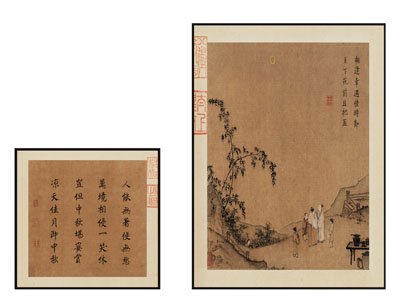 相逢幸遇佳時節
月下花前且把盃
人能無著便無愁
萬境相侵一笑休
豈但中秋堪宴賞
凉天佳月即中秋